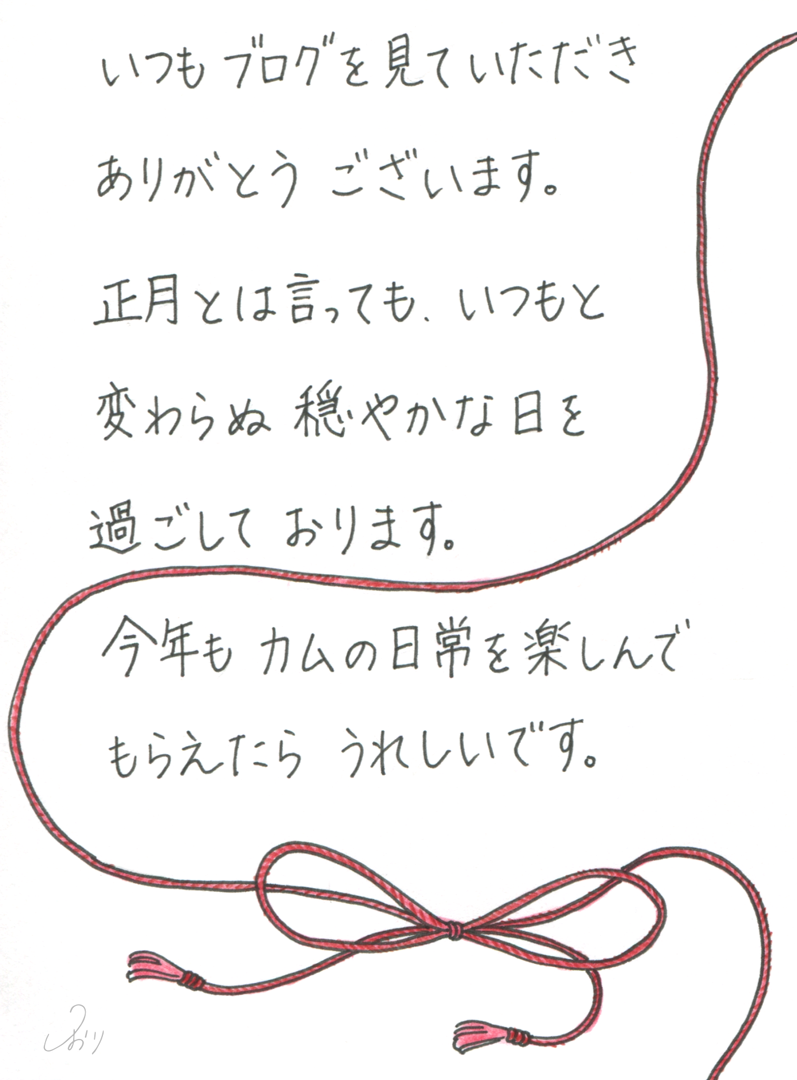 いつも ブログを見ていただき
ありがとう ございます。
正月とは言っても、いつもと
変わらぬ 穏やかな日を
過ごして おります。
今年も カムの日常を楽しんで
もらえたら うれしいです。
しおり